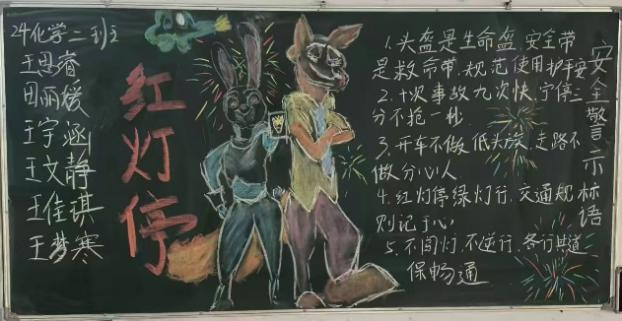 24化学二班
王思睿
田丽媛
王宇涵
王文静
王佳琪
王梦寒
红灯停
1.头盔是生命盔,安全带
是救命带,规范使用护平安
2.十次事故九次快,宁停三
分不抢一秒
3.开车不做低头族,走路不
做分心人
4.红灯停绿灯行,交通规
则记于心
5.不闯灯,不逆行,各行其道
保畅通
安全警示标语